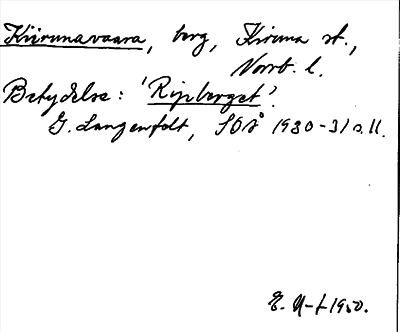 Kiirunavaara, berg, Kiruna st.,
Norrb. l.
Betydelse: 'Ripberget'.
G. Langenfelt, SOÅ 1930-31 s. 11.
1950.